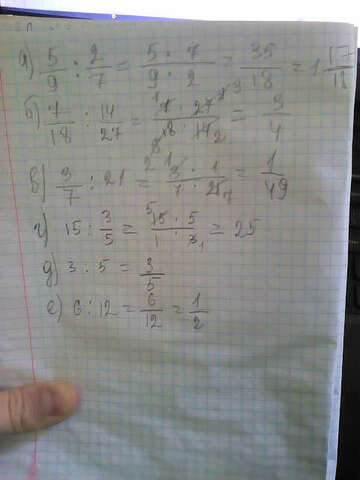 а) 5/9 : 2/7 = 5 · 7 / 9 · 2 = 35/18 = 1 17/18
б) 7/18 : 14/27 = 7 · 27 / 18 · 14 = 3/4
в) 3/7 : 21 = 3 · 1 / 7 · 21 = 1/49
г) 15 : 3/5 = 15 · 5 / 1 · 3 = 25
д) 3 : 5 = 3/5
е) 6 : 12 = 6/12 = 1/2